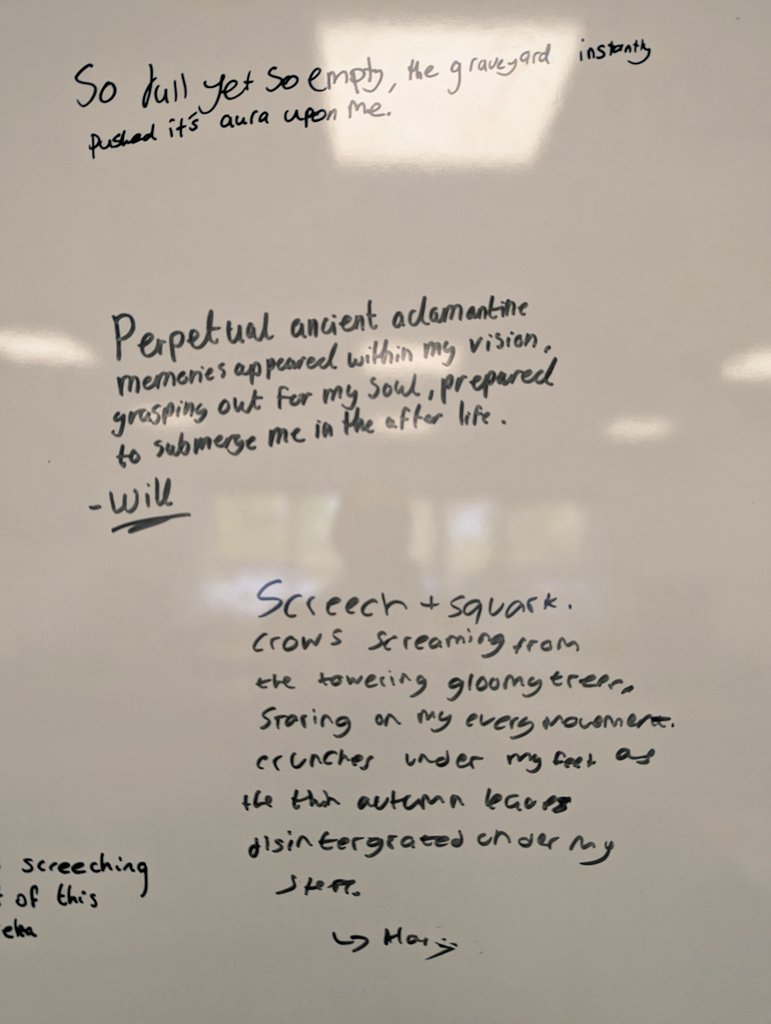 So full yet so empty, the graveyard instantly
pushed it's aura upon me.
Perpetual ancient adamantine
memories appeared within my vision,
grasping out for my soul, prepared
to submerge me in the after life.
- Will
Screech + squark.
crows screaming from
the towering gloomy trees,
Staring on my every movement.
crunches under my feet as
the thin autumn leaves
disintergrated under my
step.
screeching
of this